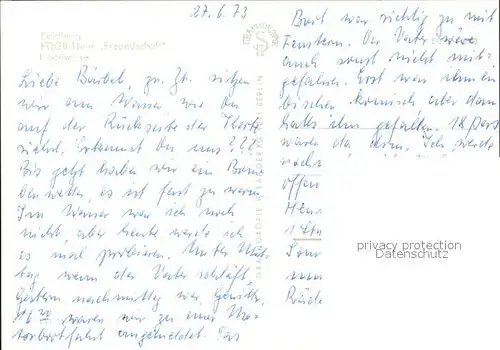 27.6.73
Feldberg
FDGB-Heim "Freundschaft"
Liebe Bärbel, zu. Zt. sitzen
wir am Wasser wie Du
auf der Rückseite der Karte
siehst. Erkennst Du uns???
Bis jetzt haben wir ein Bom-
benwetter, es ist fast zu warm.
Im Wasser war ich noch
nicht, aber heute werde ich
es mal probieren. Unter Mit-
tag wenn der Vater schläft.
Gestern nachmittag war
16 30 waren wir zu einer Mo-
torbootfahrt angemeldet. Das
Boot war richtig zu mit
Fenstern. Der Vater wäre
auch sonst nicht mit-
gefahren. Erst war ihm ein
bischen komisch, aber dann
hats ihm gefallen. 18 Pers
waren da drin. Ich werde
noch
offen
1 Stu
Rück
BERLIN
privacy protection
Datenschutz